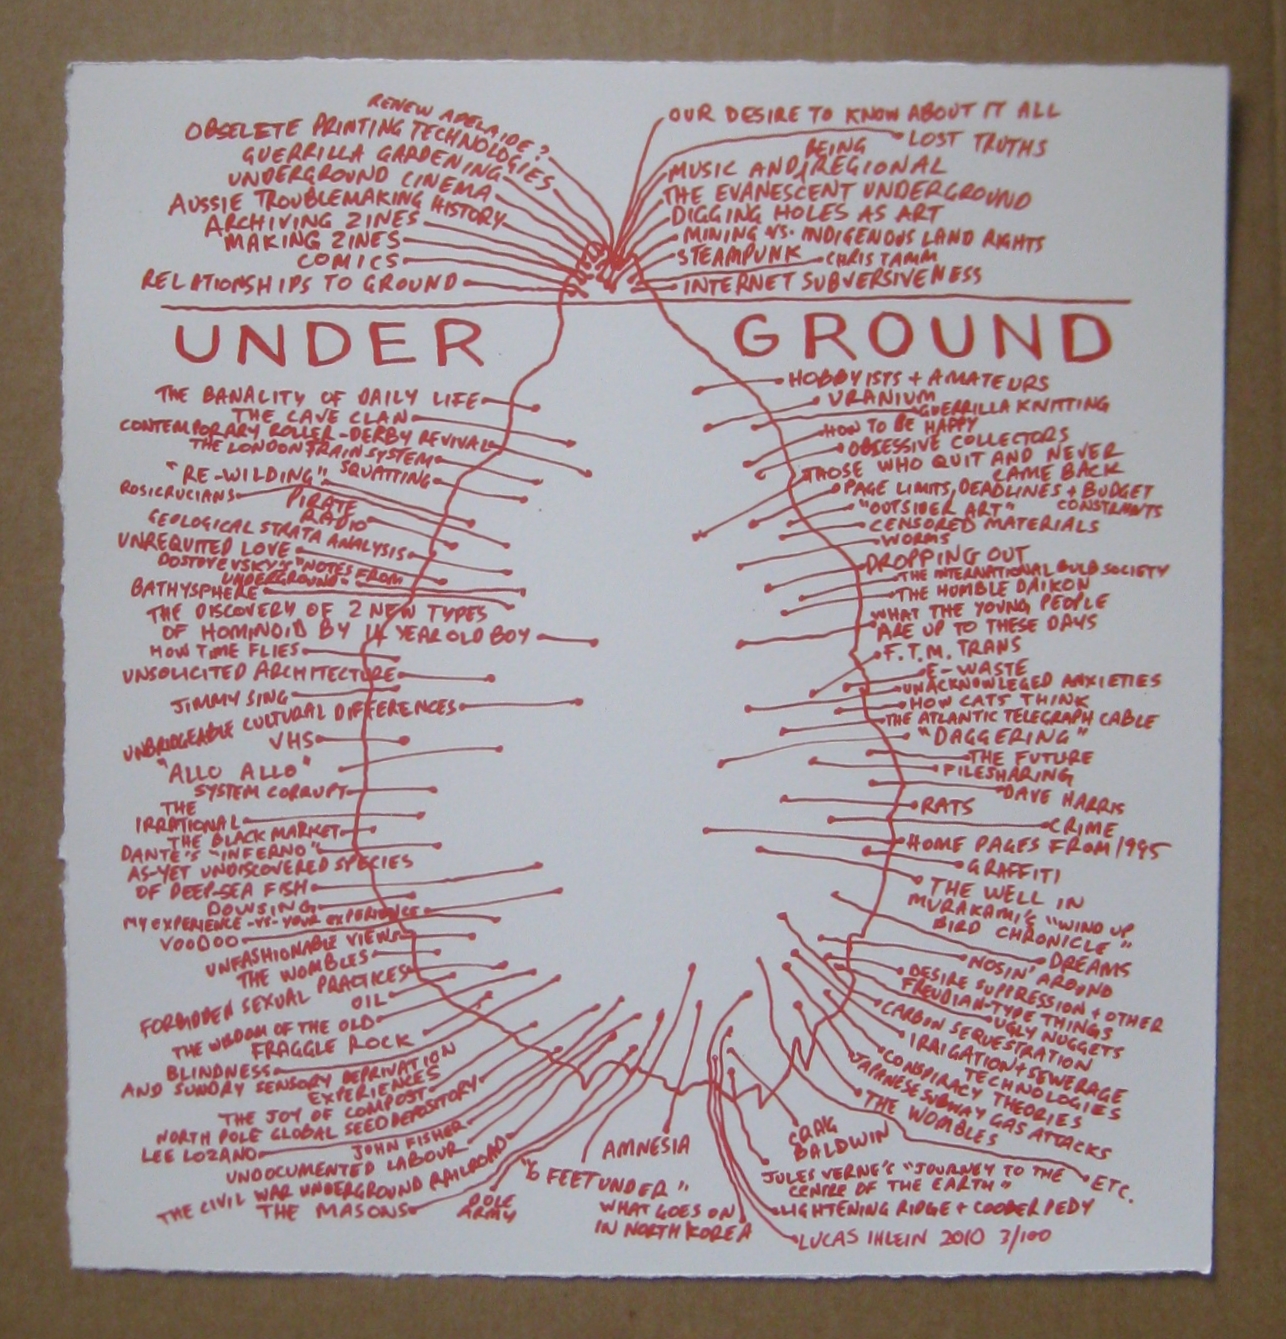 RENEW ADELAIDE?
OBSELETE PRINTING TECHNOLOGIES
GUERRILLA GARDENING
UNDERGROUND CINEMA
AUSSIE TROUBLEMAKING HISTORY
ARCHIVING ZINES
MAKING ZINES
COMICS
RELATIONSHIPS TO GROUND
OUR DESIRE TO KNOW ABOUT IT ALL
LOST TRUTHS
BEING
MUSIC AND REGIONAL
THE EVANESCENT UNDERGROUND
DIGGING HOLES AS ART
MINING VS. INDIGENOUS LAND RIGHTS
STEAMPUNK
CHRIS TAMM
INTERNET SUBVERSIVENESS
UNDER GROUND
THE BANALITY OF DAILY LIFE
THE CAVE CLAN
CONTEMPORARY ROLLER-DERBY REVIVAL
THE LONDON TRAIN SYSTEM
"RE-WILDING"
SQUATTING
ROSICRUCIANS
PIRATE
RADIO
GEOLOGICAL STRATA ANALYSIS
UNREQUITED LOVE
DOSTOYEVSKY'S "NOTES FROM
UNDERGROUND"
BATHYSPHERE
THE DISCOVERY OF 2 NEW TYPES
OF HOMINOID BY 14 YEAR OLD BOY
HOW TIME FLIES
UNSOLICITED ARCHITECTURE
JIMMY SING
UNBRIDGEABLE CULTURAL DIFFERENCES
VHS
"ALLO ALLO"
SYSTEM CORRUPT
THE
IRRATIONAL
THE BLACK MARKET
DANTE'S "INFERNO"
AS-YET UNDISCOVERED SPECIES
OF DEEP-SEA FISH
DOWSING
MY EXPERIENCE -VS- YOUR EXPERIENCE
VOODOO
UNFASHIONABLE VIEWS
THE WOMBLES
FORBIDDEN SEXUAL PRACTICES
OIL
THE WISDOM OF THE OLD
FRAGGLE ROCK
BLINDNESS
AND SUNDRY SENSORY DEPRIVATION
EXPERIENCES
THE JOY OF COMPOST
NORTH POLE GLOBAL SEED DEPOSITORY
LEE LOZANO
JOHN FISHER
UNDOCUMENTED LABOUR
THE CIVIL WAR UNDERGROUND RAILROAD
THE MASONS
DOLE
ARMY
"6 FEET UNDER"
AMNESIA
WHAT GOES ON
IN NORTH KOREA
HOBBYISTS + AMATEURS
URANIUM
GUERRILLA KNITTING
HOW TO BE HAPPY
OBSESSIVE COLLECTORS
THOSE WHO QUIT AND NEVER
CAME BACK
PAGE LIMITS, DEADLINES + BUDGET
CONSTRAINTS
"OUTSIDER ART"
CENSORED MATERIALS
WORMS
DROPPING OUT
THE INTERNATIONAL BULB SOCIETY
THE HUMBLE DAIKON
WHAT THE YOUNG PEOPLE
ARE UP TO THESE DAYS
F.T.M. TRANS
E-WASTE
UNACKNOWLEGED ANXIETIES
HOW CATS THINK
THE ATLANTIC TELEGRAPH CABLE
"DAGGERING"
THE FUTURE
PILESHARING
DAVE HARRIS
RATS
CRIME
HOME PAGES FROM 1995
GRAFFITI
THE WELL IN
MURAKAMI'S "WIND UP
BIRD CHRONICLE"
DREAMS
NOSIN' AROUND
DESIRE SUPPRESSION + OTHER
FREUDIAN-TYPE THINGS
UGLY NUGGETS
CARBON SEQUESTRATION
IRRIGATION + SEWERAGE
TECHNOLOGIES
CONSPIRACY THEORIES
JAPANESE SUBWAY GAS ATTACKS
THE WOMBLES
ETC.
CRAIG
BALDWIN
JULES VERNE'S "JOURNEY TO THE
CENTRE OF THE EARTH"
LIGHTENING RIDGE + COOBER PEDY
LUCAS IHLEIN 2010 3/100